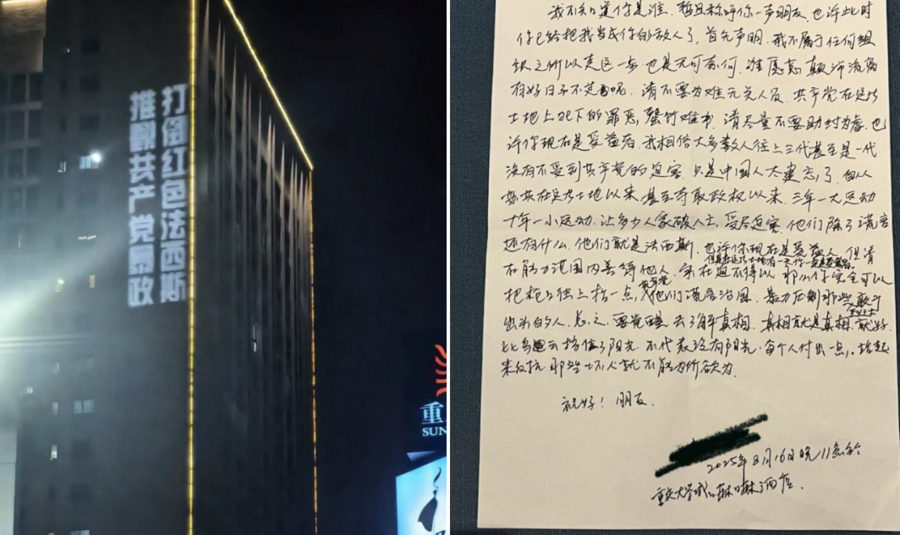 打倒红色法西斯
推翻共产党暴政
重
SUN
我不知道你是谁，暂且称呼你一声朋友，也许此时
你已经把我当成你的敌人了，首先声明，我不属于任何组
织之所以走这一步也是无可奈何，谁愿意颠沛流离
有好日子不过呢，请不要为难无关人员，共产党在这片
土地上犯下的罪恶，罄竹难书，请尽量不要助纣为虐，也
许你现在是受益者 我相信大多数人往上三代甚至是一代
没有不受到共产党的迫害，只是中国人太健忘了，自从
在这片土地以来甚至夺取政权以来，三年一大运动
十年一小运动，让多少人家破人亡，受尽迫害 他们除了谎言
还有什么，他们就是法西斯，也许你现在是受益人，但请
在能力范围内善待他人，实在迫不得以 那么你完全可以
把枪口往上抬一点，他们谎言治国，暴力压制那些敢于
出来的人，总之，要觉醒 去了解真相，真相就是真相，就好
比乌云挡住了阳光，不代表没有阳光，每个人付出一点，站起
来反抗，那些人就不能为所欲为
祝好！朋友。
2025年8月16日晚11点于
重庆大学城 酒店